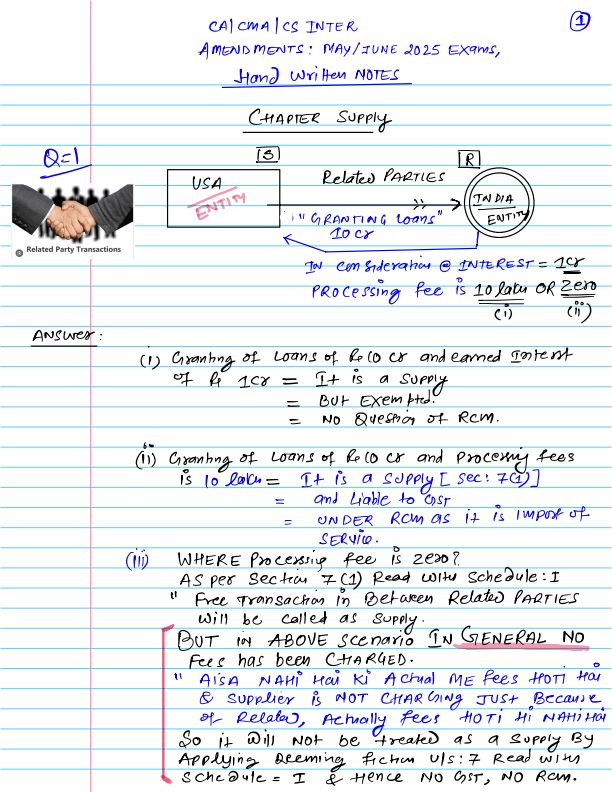 1
CA|CMA|CS INTER
AMENDMENTS: MAY/JUNE 2025 Exams,
Hand Written NOTES
CHAPTER SUPPLY
Q=1
S
R
Related PARTIES
USA
ENTITY
INDIA
ENTITY
"GRANTING Loans"
10 cr
Related Party Transactions
IN consideration @ INTEREST = 1cr
PROCESSING fee is 10 lakh OR Zero
(i) (ii)
ANSWER:
(i) Granting of Loans of Rs 10 cr and earned Interest
of Rs 1cr = It is a supply
= But Exempted.
= No Question of RCM.
(ii) Granting of Loans of Rs 10 cr and Processing fees
is 10 lakh = It is a supply [sec: 7(1)]
= and Liable to GST
= UNDER RCM as it is Import of
Service.
(iii) WHERE Processing fee is ZERO?
AS per Section 7(1) Read with Schedule: I
" Free Transaction in Between Related PARTIES
will be called as supply.
BUT IN ABOVE Scenario IN GENERAL NO
Fees has been CHARGED.
" AISA NAHI Hai Ki Actual ME fees HOTI Hai
& Supplier is NOT CHARGING JUST Because
of Related, Actually fees HOTI HI NAHI Hai
So it will Not be treated as a Supply By
Applying Deeming fiction u/s: 7 Read with
Schedule = I & Hence NO GST, NO RCM.